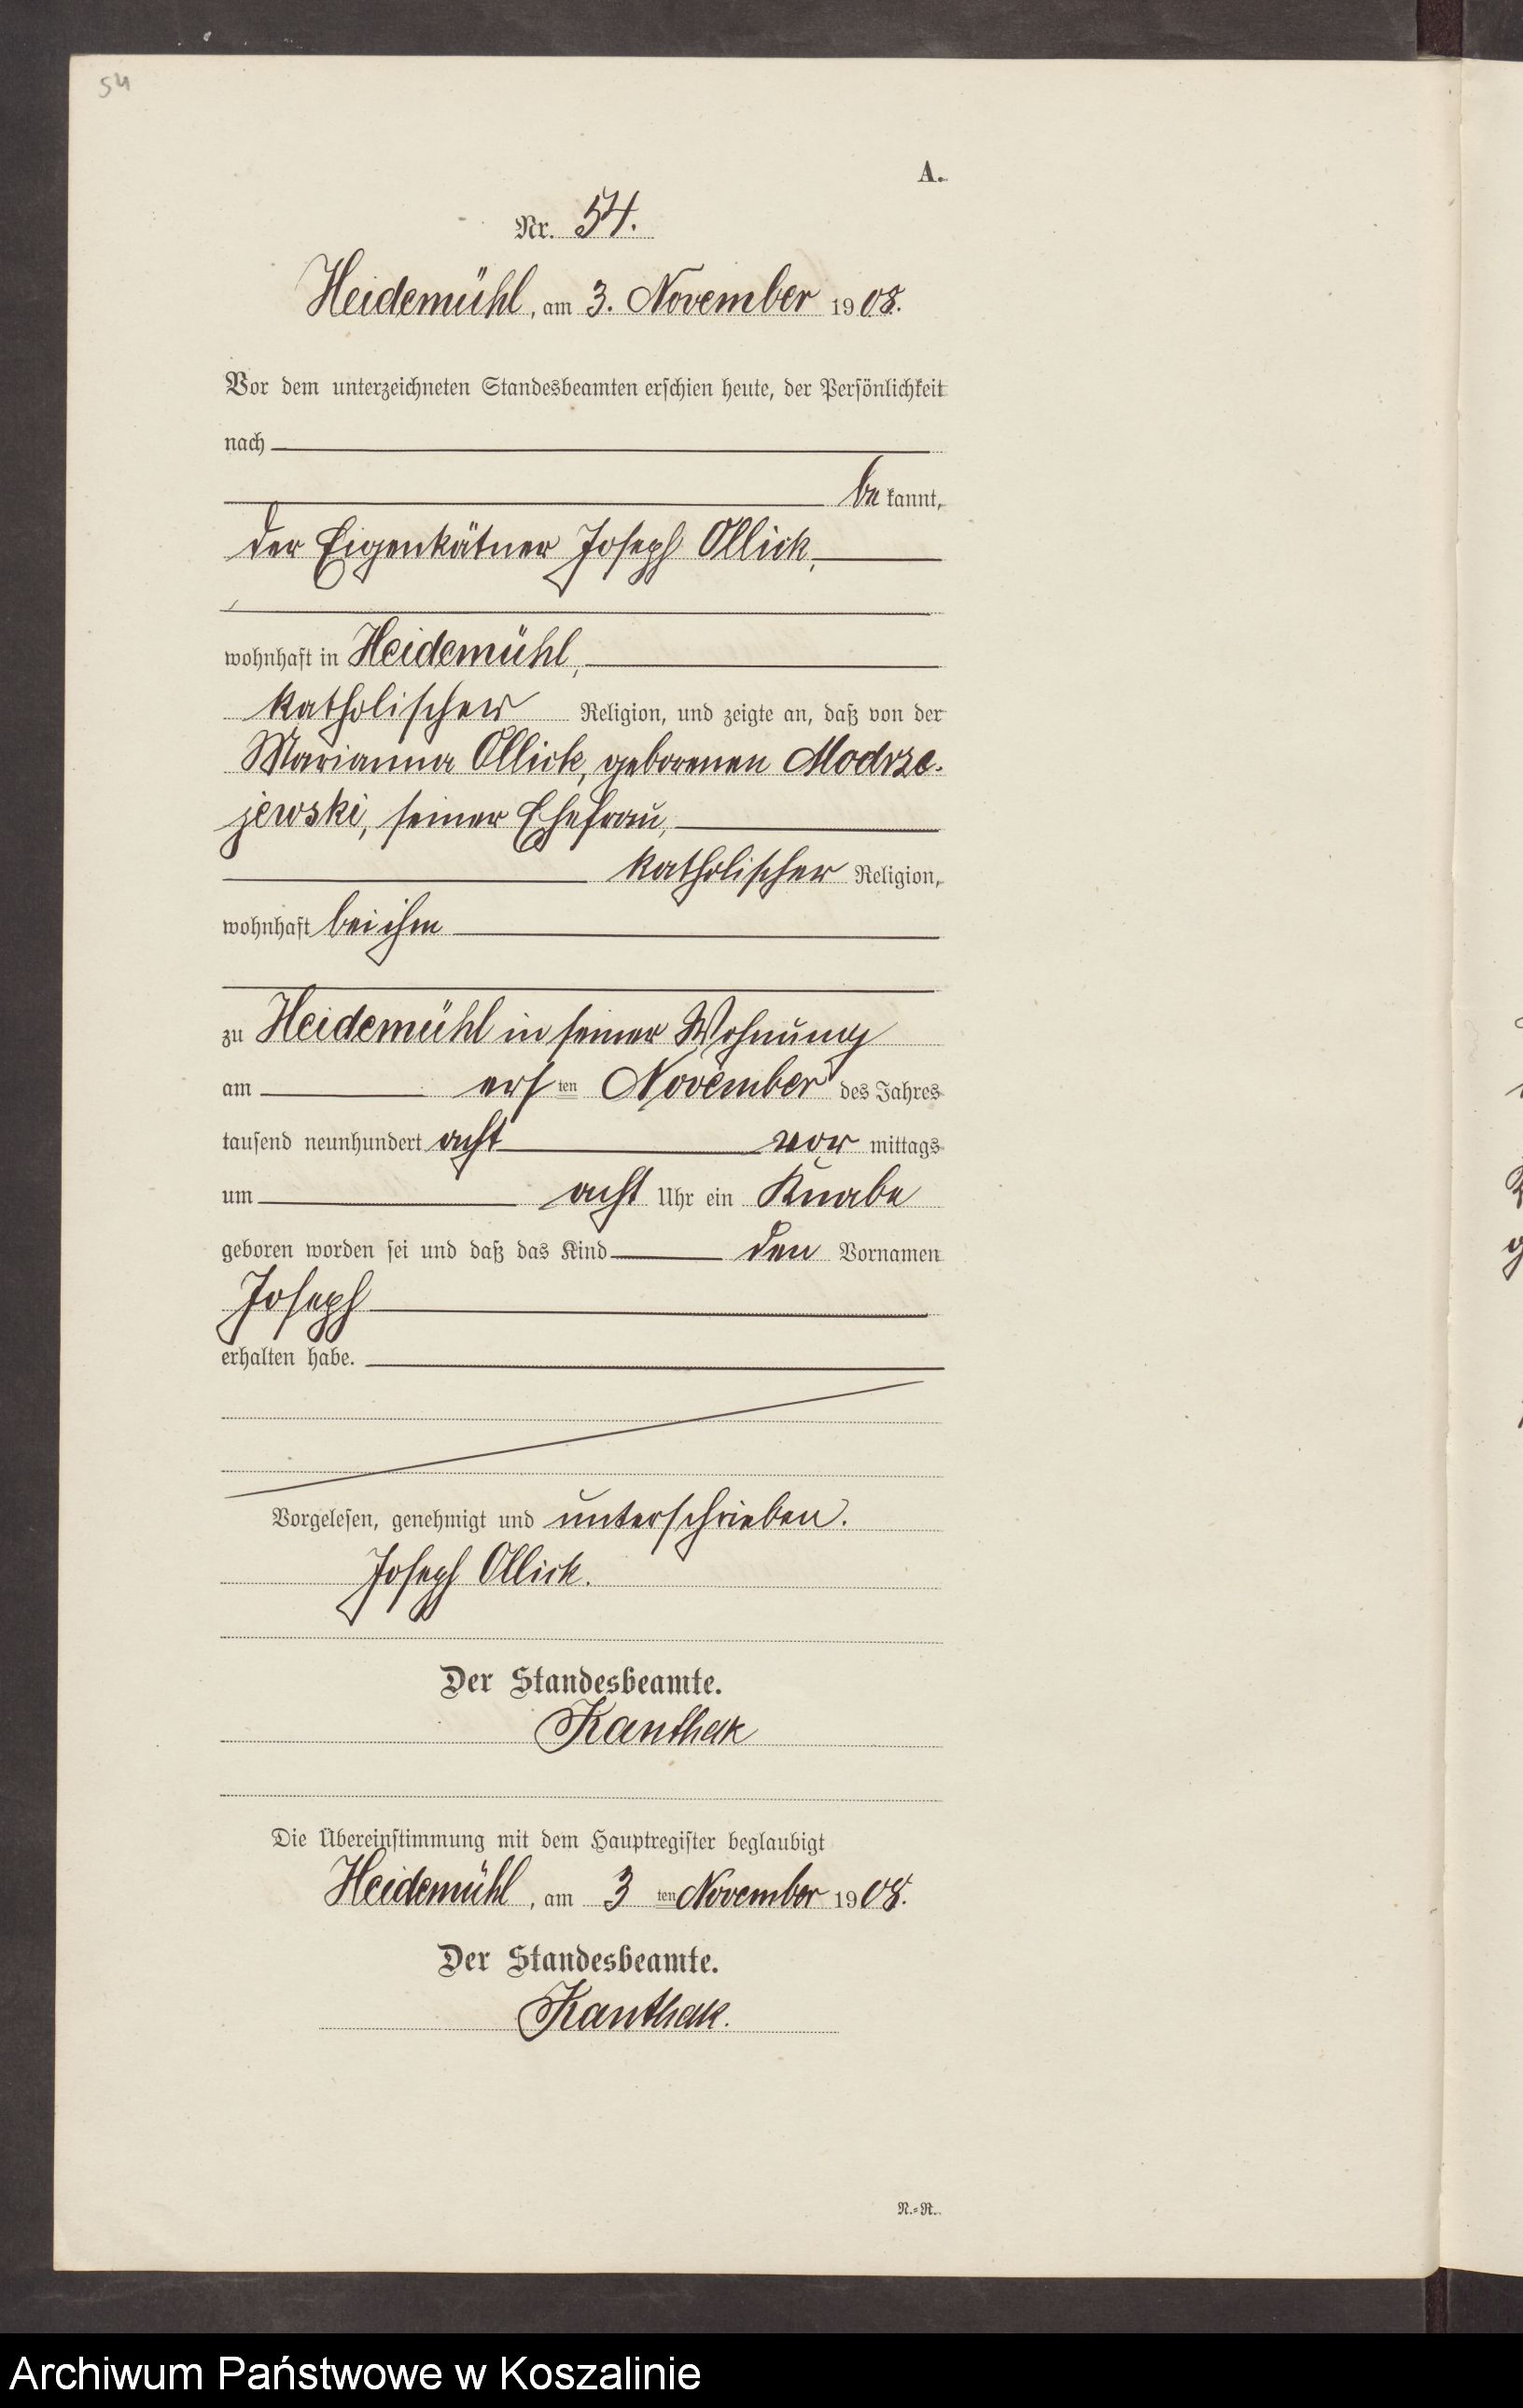 54
A.
Nr. 54.
Heidemühl, am 3. November 1908.
Vor dem unterzeichneten Standesbeamten erschien heute, der Persönlichkeit
nach
be kannt,
der Eigenkätner Joseph Ollick,
wohnhaft in Heidemühl,
katholischer Religion, und zeigte an, daß von der
Marianna Ollick, geborenen Modrze-
jewski, seiner Ehefrau,
katholischer Religion,
wohnhaft bei ihm
zu Heidemühl in seiner Wohnung
am ersten November des Jahres
tausend neunhundert acht vor mittags
um acht Uhr ein Knabe
geboren worden sei und daß das Kind den Vornamen
Joseph
erhalten habe.
Vorgelesen, genehmigt und unterschrieben.
Joseph Ollick.
Der Standesbeamte.
Kanthak
Die Übereinstimmung mit dem Hauptregister beglaubigt
Heidemühl, am 3 ten November 1908.
Der Standesbeamte.
Kanthak.
N.=R.
Archiwum Państwowe w Koszalinie